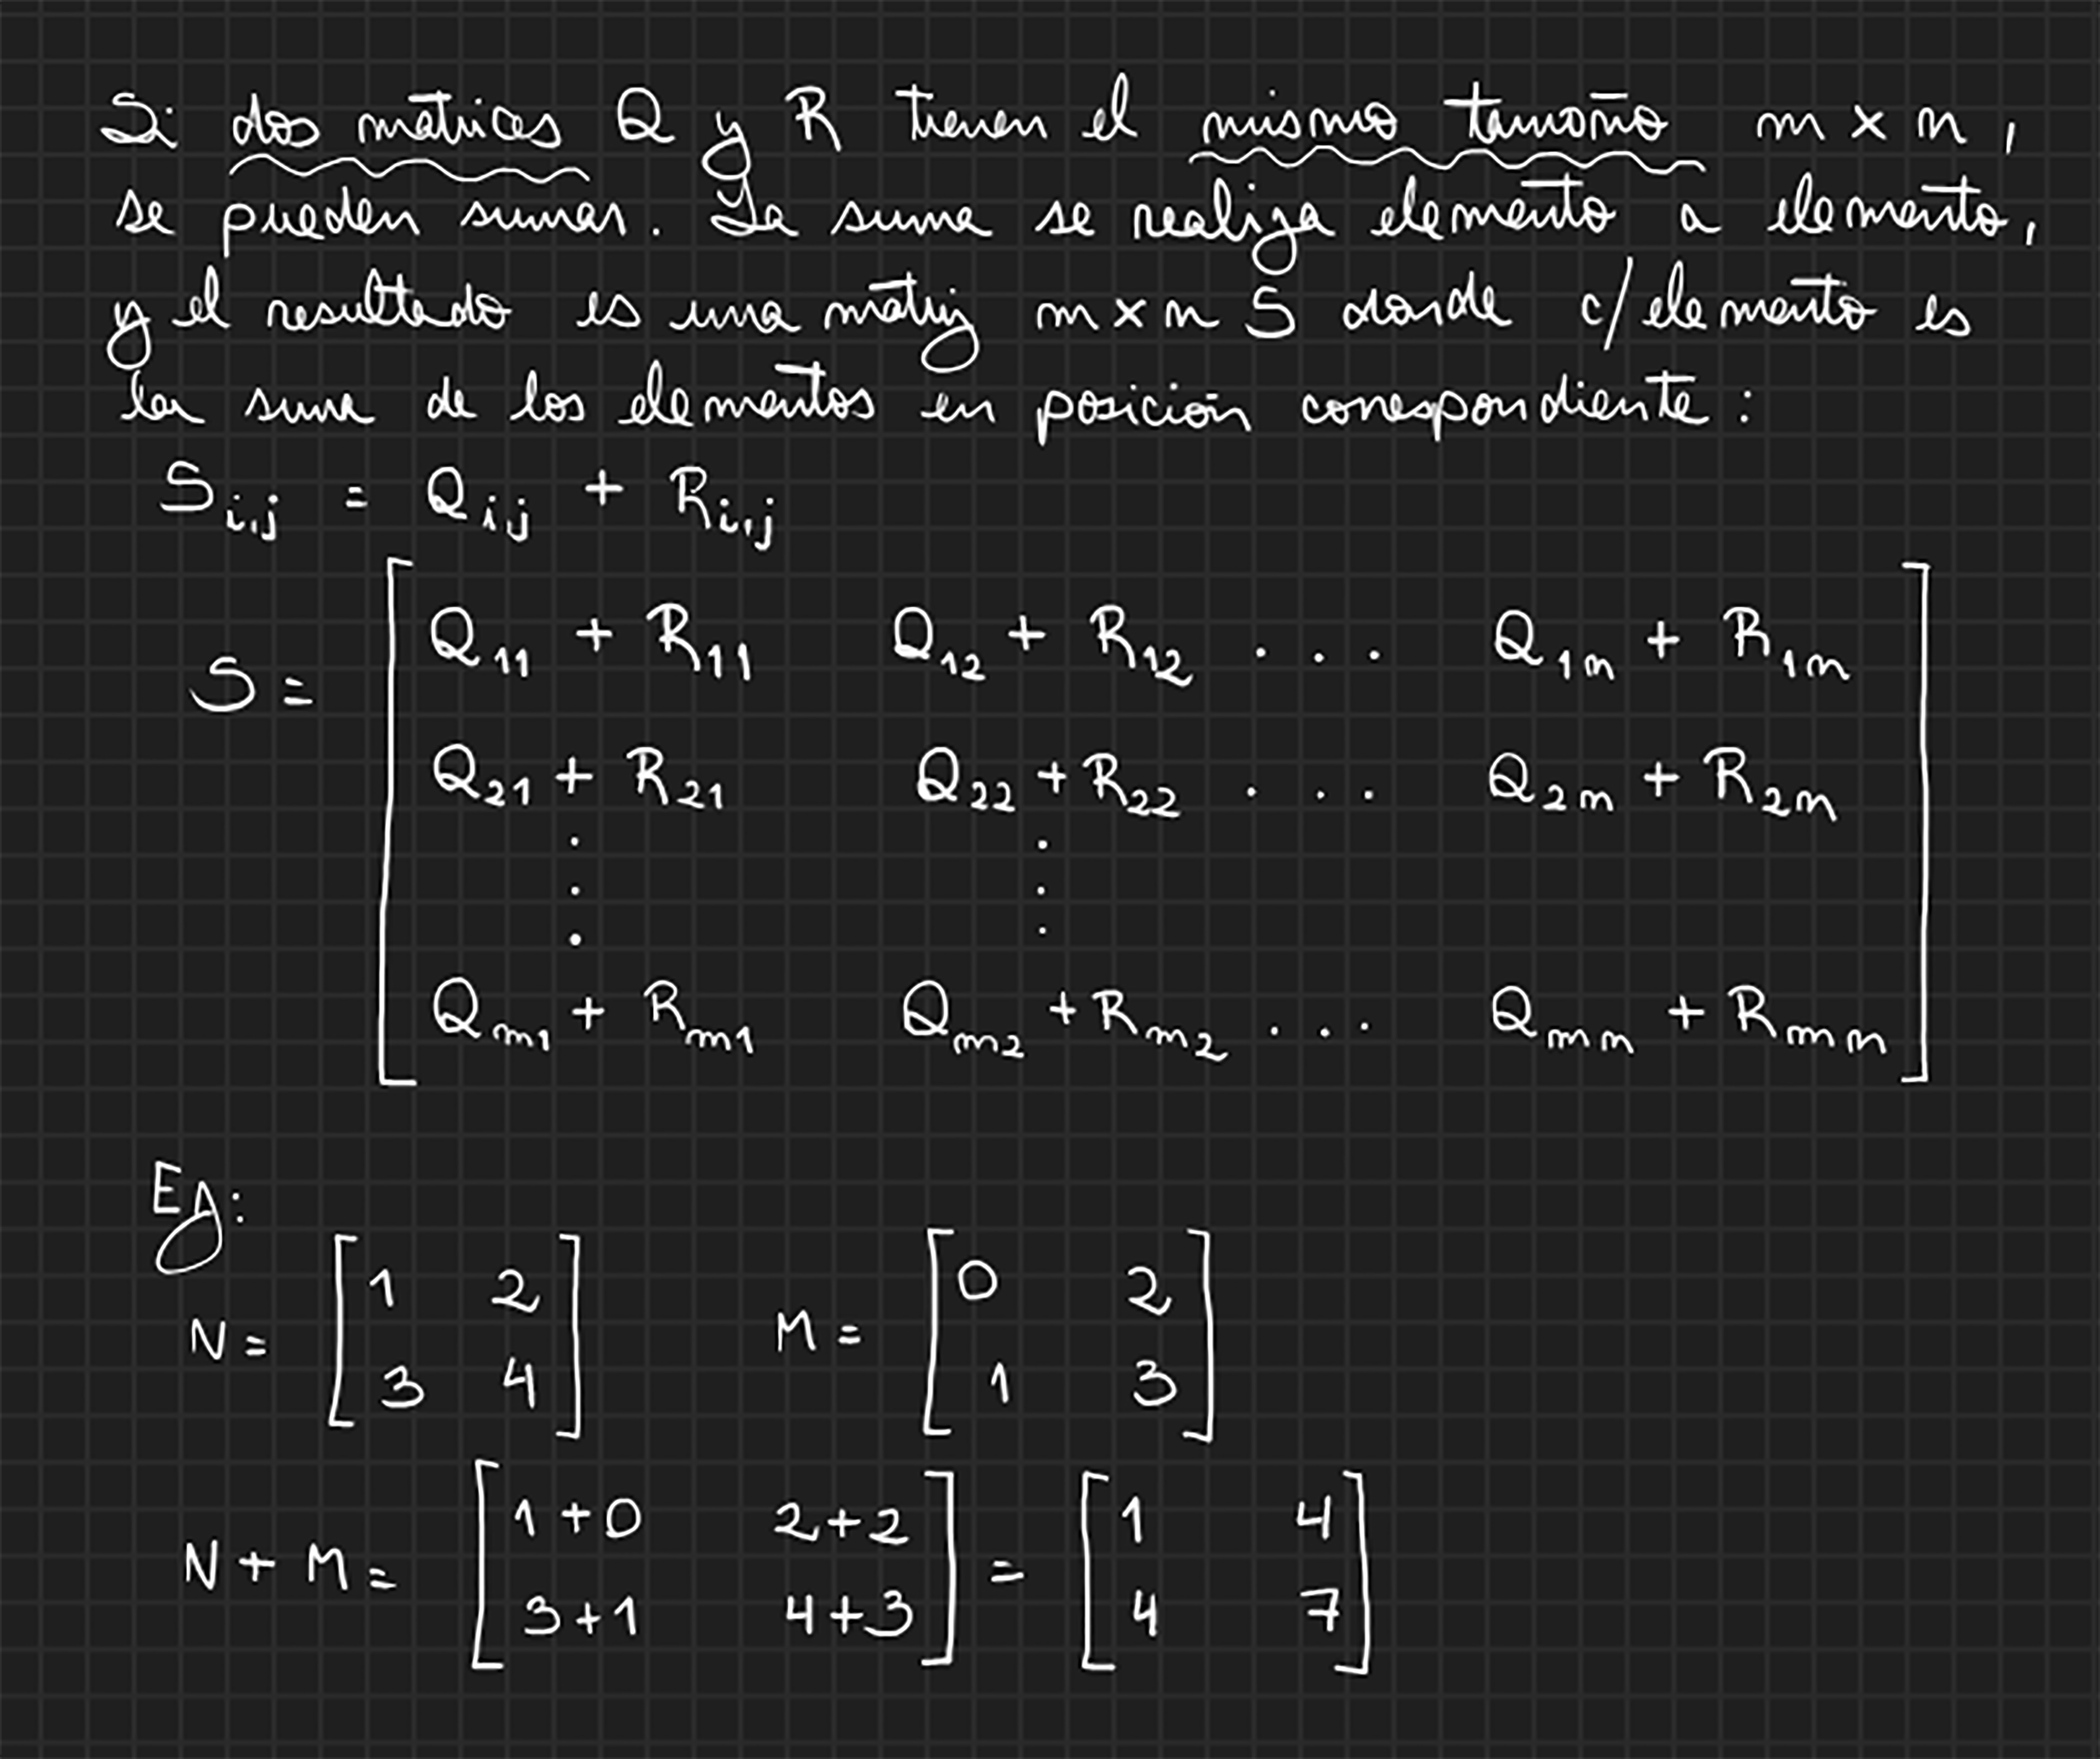 Si dos matrices Q y R tienen el mismo tamaño m x n,
se pueden sumar. La suma se realiza elemento a elemento,
y el resultado es una matriz m x n S donde c/elemento es
la suma de los elementos en posición correspondiente:
S i,j = Q i,j + R i,j
S = [ Q11 + R11 Q12 + R12 ... Q1n + R1n
Q21 + R21 Q22 + R22 ... Q2n + R2n
⋮ ⋮
Qm1 + Rm1 Qm2 + Rm2 ... Qmn + Rmn ]
EJ:
N = [ 1 2 M = [ 0 2
3 4 ] 1 3 ]
N + M = [ 1+0 2+2 = [ 1 4
3+1 4+3 ] 4 7 ]